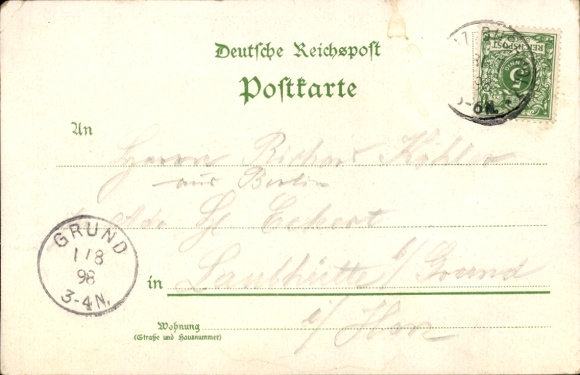 Deutsche Reichspost
Postkarte
REICHSPOST
5
98
An
Herrn Richard Köhler
aus Berlin
Adr. Eckert
GRUND
1/8
98
3-4N.
in Laubhütte b/ Grund
i/ Harz
Wohnung
(Straße und Hausnummer)